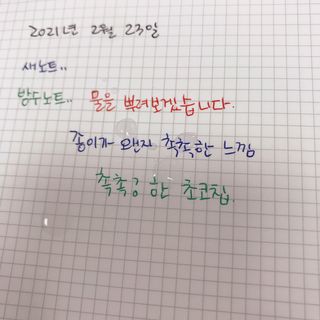 2021년 2월 23일
새노트..
방수노트.. 물을 뿌려보겠습니다.
종이가 왠지 촉촉한 느낌
촉촉강 한 초코칩.